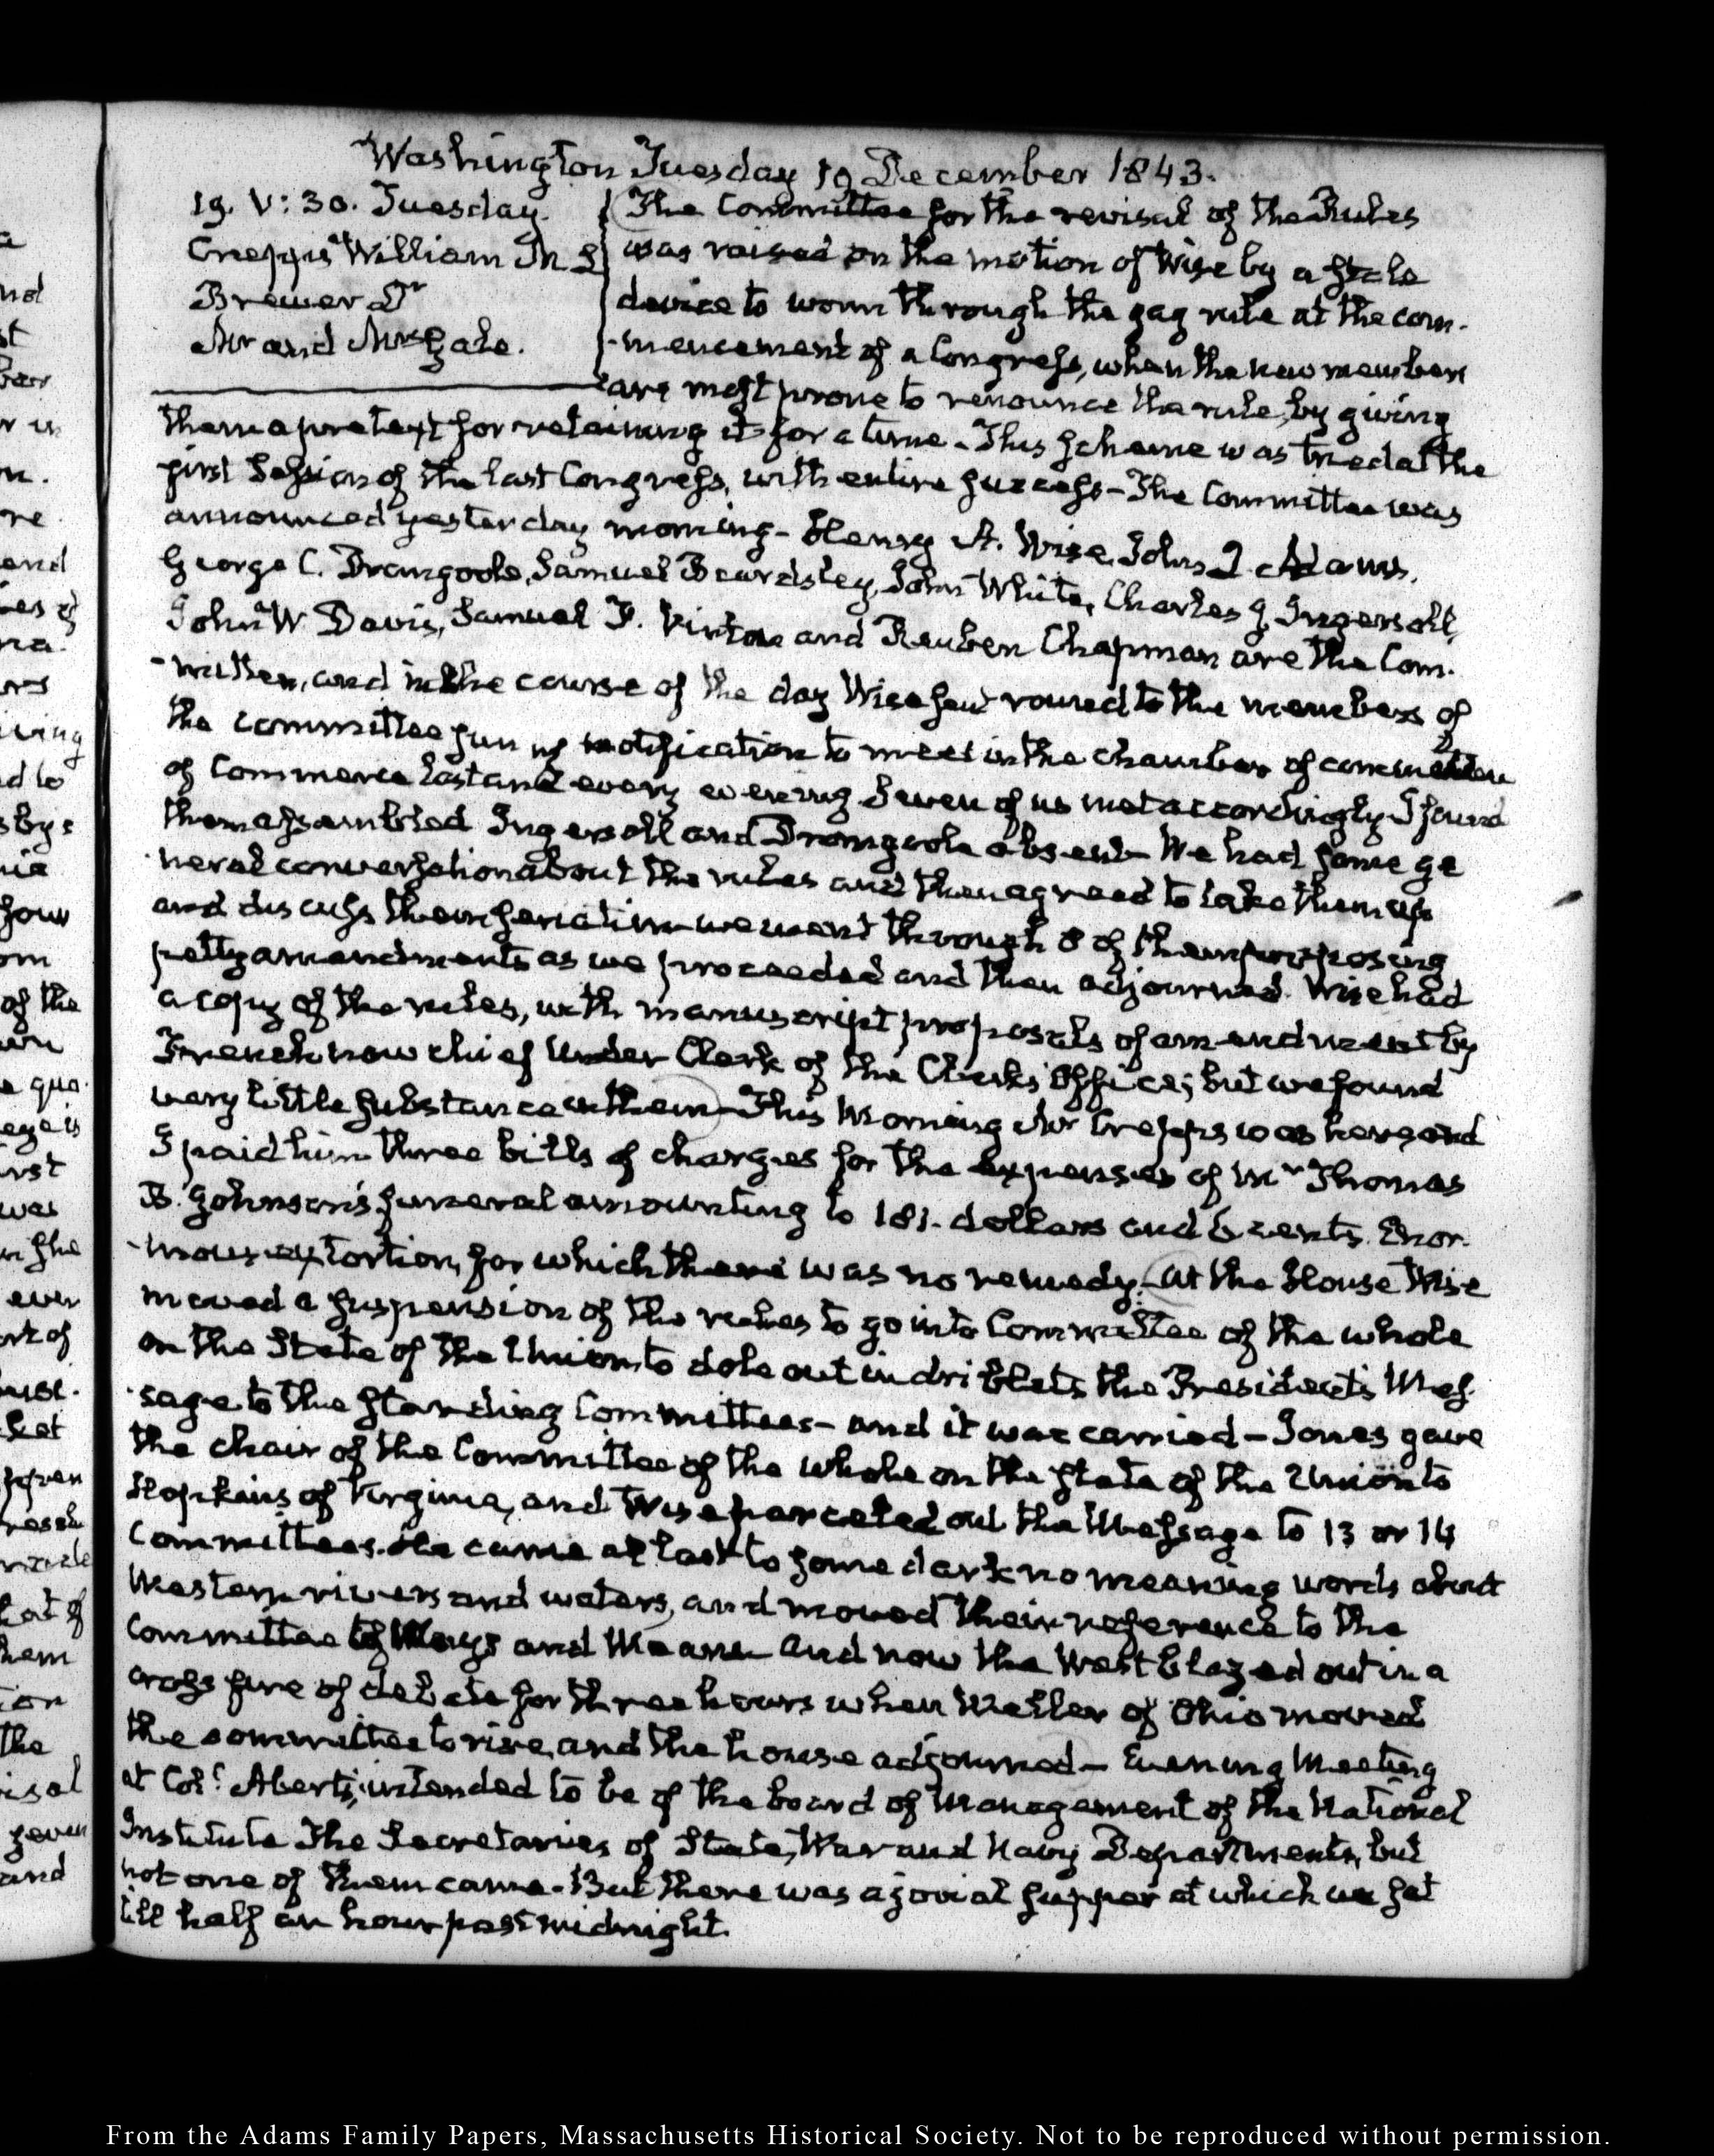 Washington Tuesday 19 December 1843.
19. V: 30. Tuesday.
Creppis William M S
Brewer Dr
Mr and Mrs Gale.
The Committee for the revisal of the Rules
was raised on the motion of Wise by a stale
device to worm through the gag rule at the com-
-mencement of a Congress, when the new members
are most prone to renounce the rule, by giving
them a pretext for retaining it for a time - This scheme was tried at the
first Session of the last Congress, with entire success - The Committee was
announced yesterday morning - Henry A. Wise, John Q. Adams,
George C. Dromgoole, Samuel Beardsley, John White, Charles J. Ingersoll,
John W Davis, Samuel F. Vinton and Reuben Chapman are the Com-
-mittee, and in the course of the day Wise sent round to the members of
the committee summoning notification to meet in the chamber of committee
of Commerce last and every evening Seven of us met accordingly I found
them assembled Ingersoll and Dromgoole absent - We had some ge
neral conversation about the rules and then agreed to take them up
and discuss them seriatim - we went through 8 of them proposing
petty amendments as we proceeded and then adjourned. Wise had
a copy of the rules, with manuscript proposals of amendment by
French now chief Under Clerk of the Clerk's Office; but we found
very little substance in them - This Morning Mr Creppis was here, and
I paid him three bills of charges for the expenses of Mr Thomas
B. Johnson's funeral amounting to 181. dollars and 6 cents. Enor-
-mous extortion, for which there was no remedy. At the House Wise
moved a suspension of the rules to go into Committee of the whole
on the State of the Union, to dole out in driblets the President's Mes-
-sage to the standing Committees - and it was carried - Jones gave
the chair of the Committee of the whole on the state of the Union to
Hopkins of Virginia, and Wise parcelled out the Message to 13 or 14
Committees. He came at last to some dark no meaning words about
Western rivers and waters, and moved their reference to the
Committee of Ways and Means and now the West blazed out in a
cross fire of debate for three hours when Weller of Ohio moved
the committee to rise, and the house adjourned - Evening Meeting
at Col. Abert's, intended to be of the board of Management of the National
Institute The Secretaries of State, War and Navy Departments, but
not one of them came. But there was a jovial supper at which we sat
till half an hour past midnight.
From the Adams Family Papers, Massachusetts Historical Society. Not to be reproduced without permission.